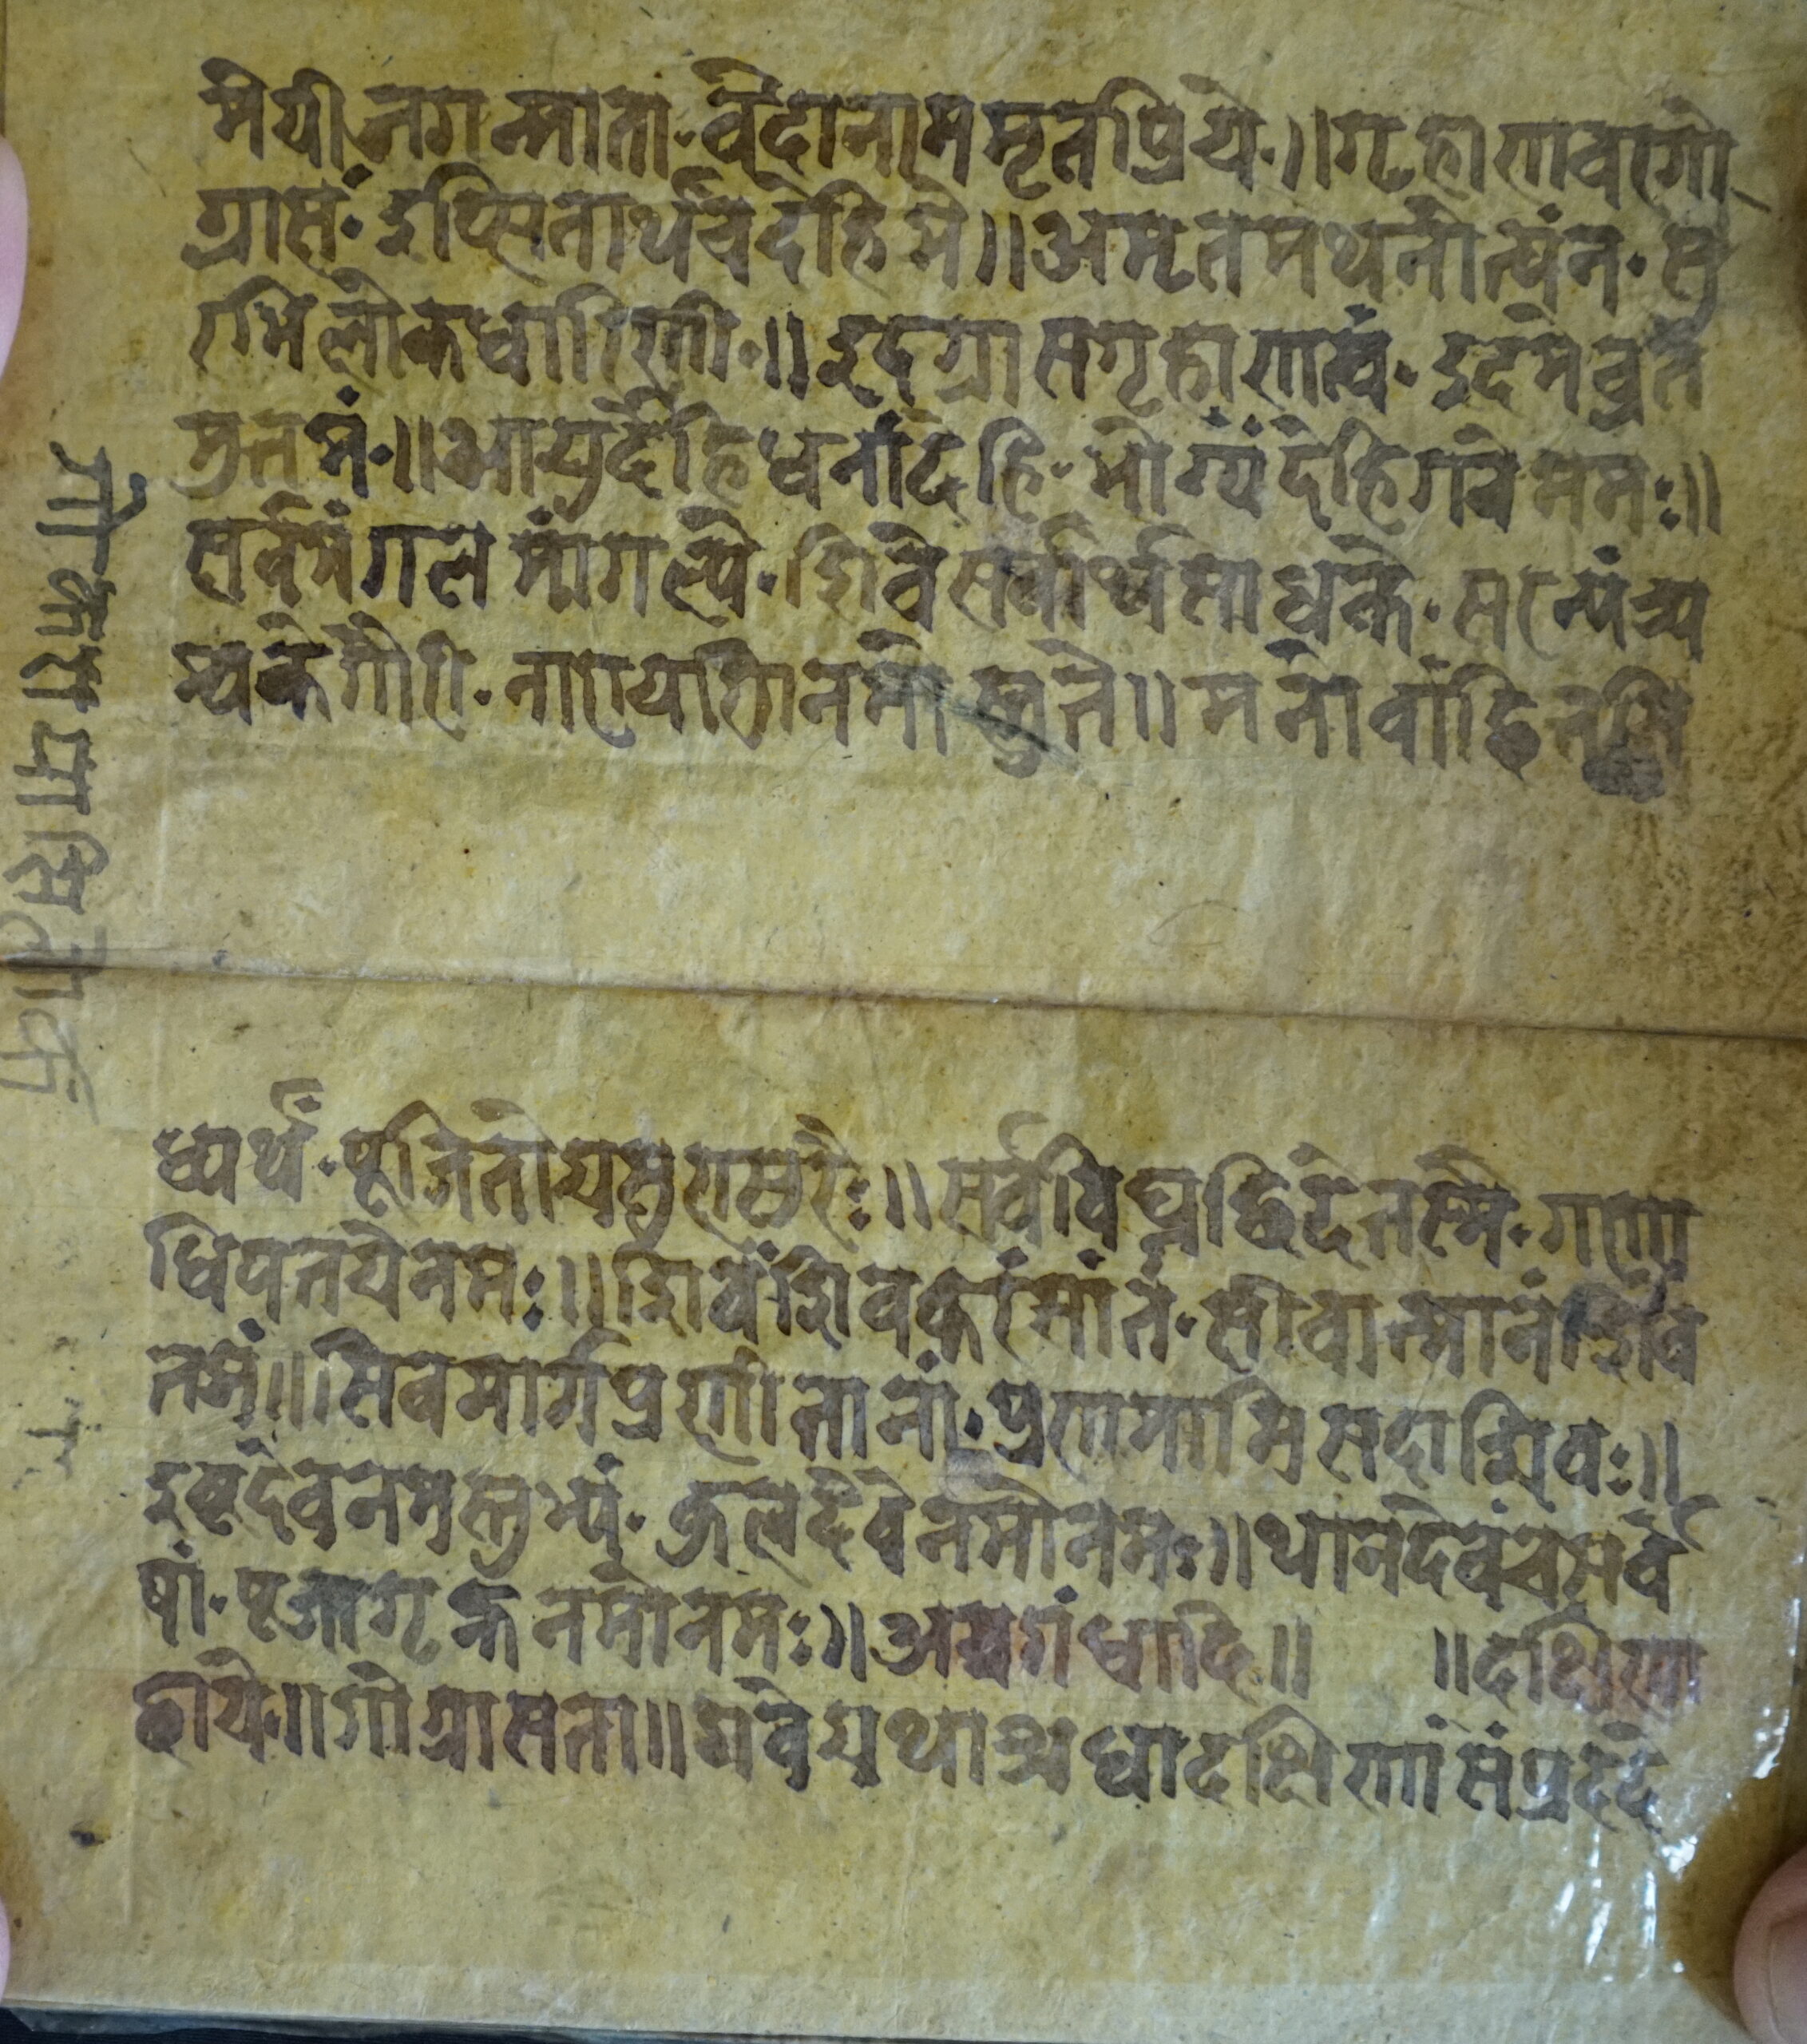 मेयी जगन्माता·वेदानाममृतप्रिये·॥गृहाणवरगो
ग्रासं·इप्सितार्थंचदेहिमे॥अमृतमथनोत्पंन·सु
रभिलोकधारिणी·॥इदग्रासगृहाणत्वं·इदमेव्रत
मुतमं·॥आयुर्देहिधनांदेहि·भोग्यंदेहिगवेमम:॥
सर्वमंगलमांगल्ये·शिवेसर्वार्थसाधके·सरन्येंत्र्य
म्वकेगौरि·नारायेणिनमोस्तुते॥मनोवांछित
ध्यर्थं·पूजितोयसुरासुरैः॥सर्वविघ्नछिदेतस्मै·गणा
धिपतयेनमः॥शिवंशिवकरंसांतं·सीवात्मानंशिव
तमं॥सिवमार्गप्रणीतानां·प्रणमामिसदासिवः॥
इष्टदेवनमस्तुभ्यं·कुलदेवेनमोनमः॥थानदेवंचसर्वे
षां·पूजागृहनमोनमः॥अत्रगंधादि॥ ॥दक्षिणा
छाये॥गोग्रासता॥मवेयथाश्रधादक्षिणांसंप्रददे